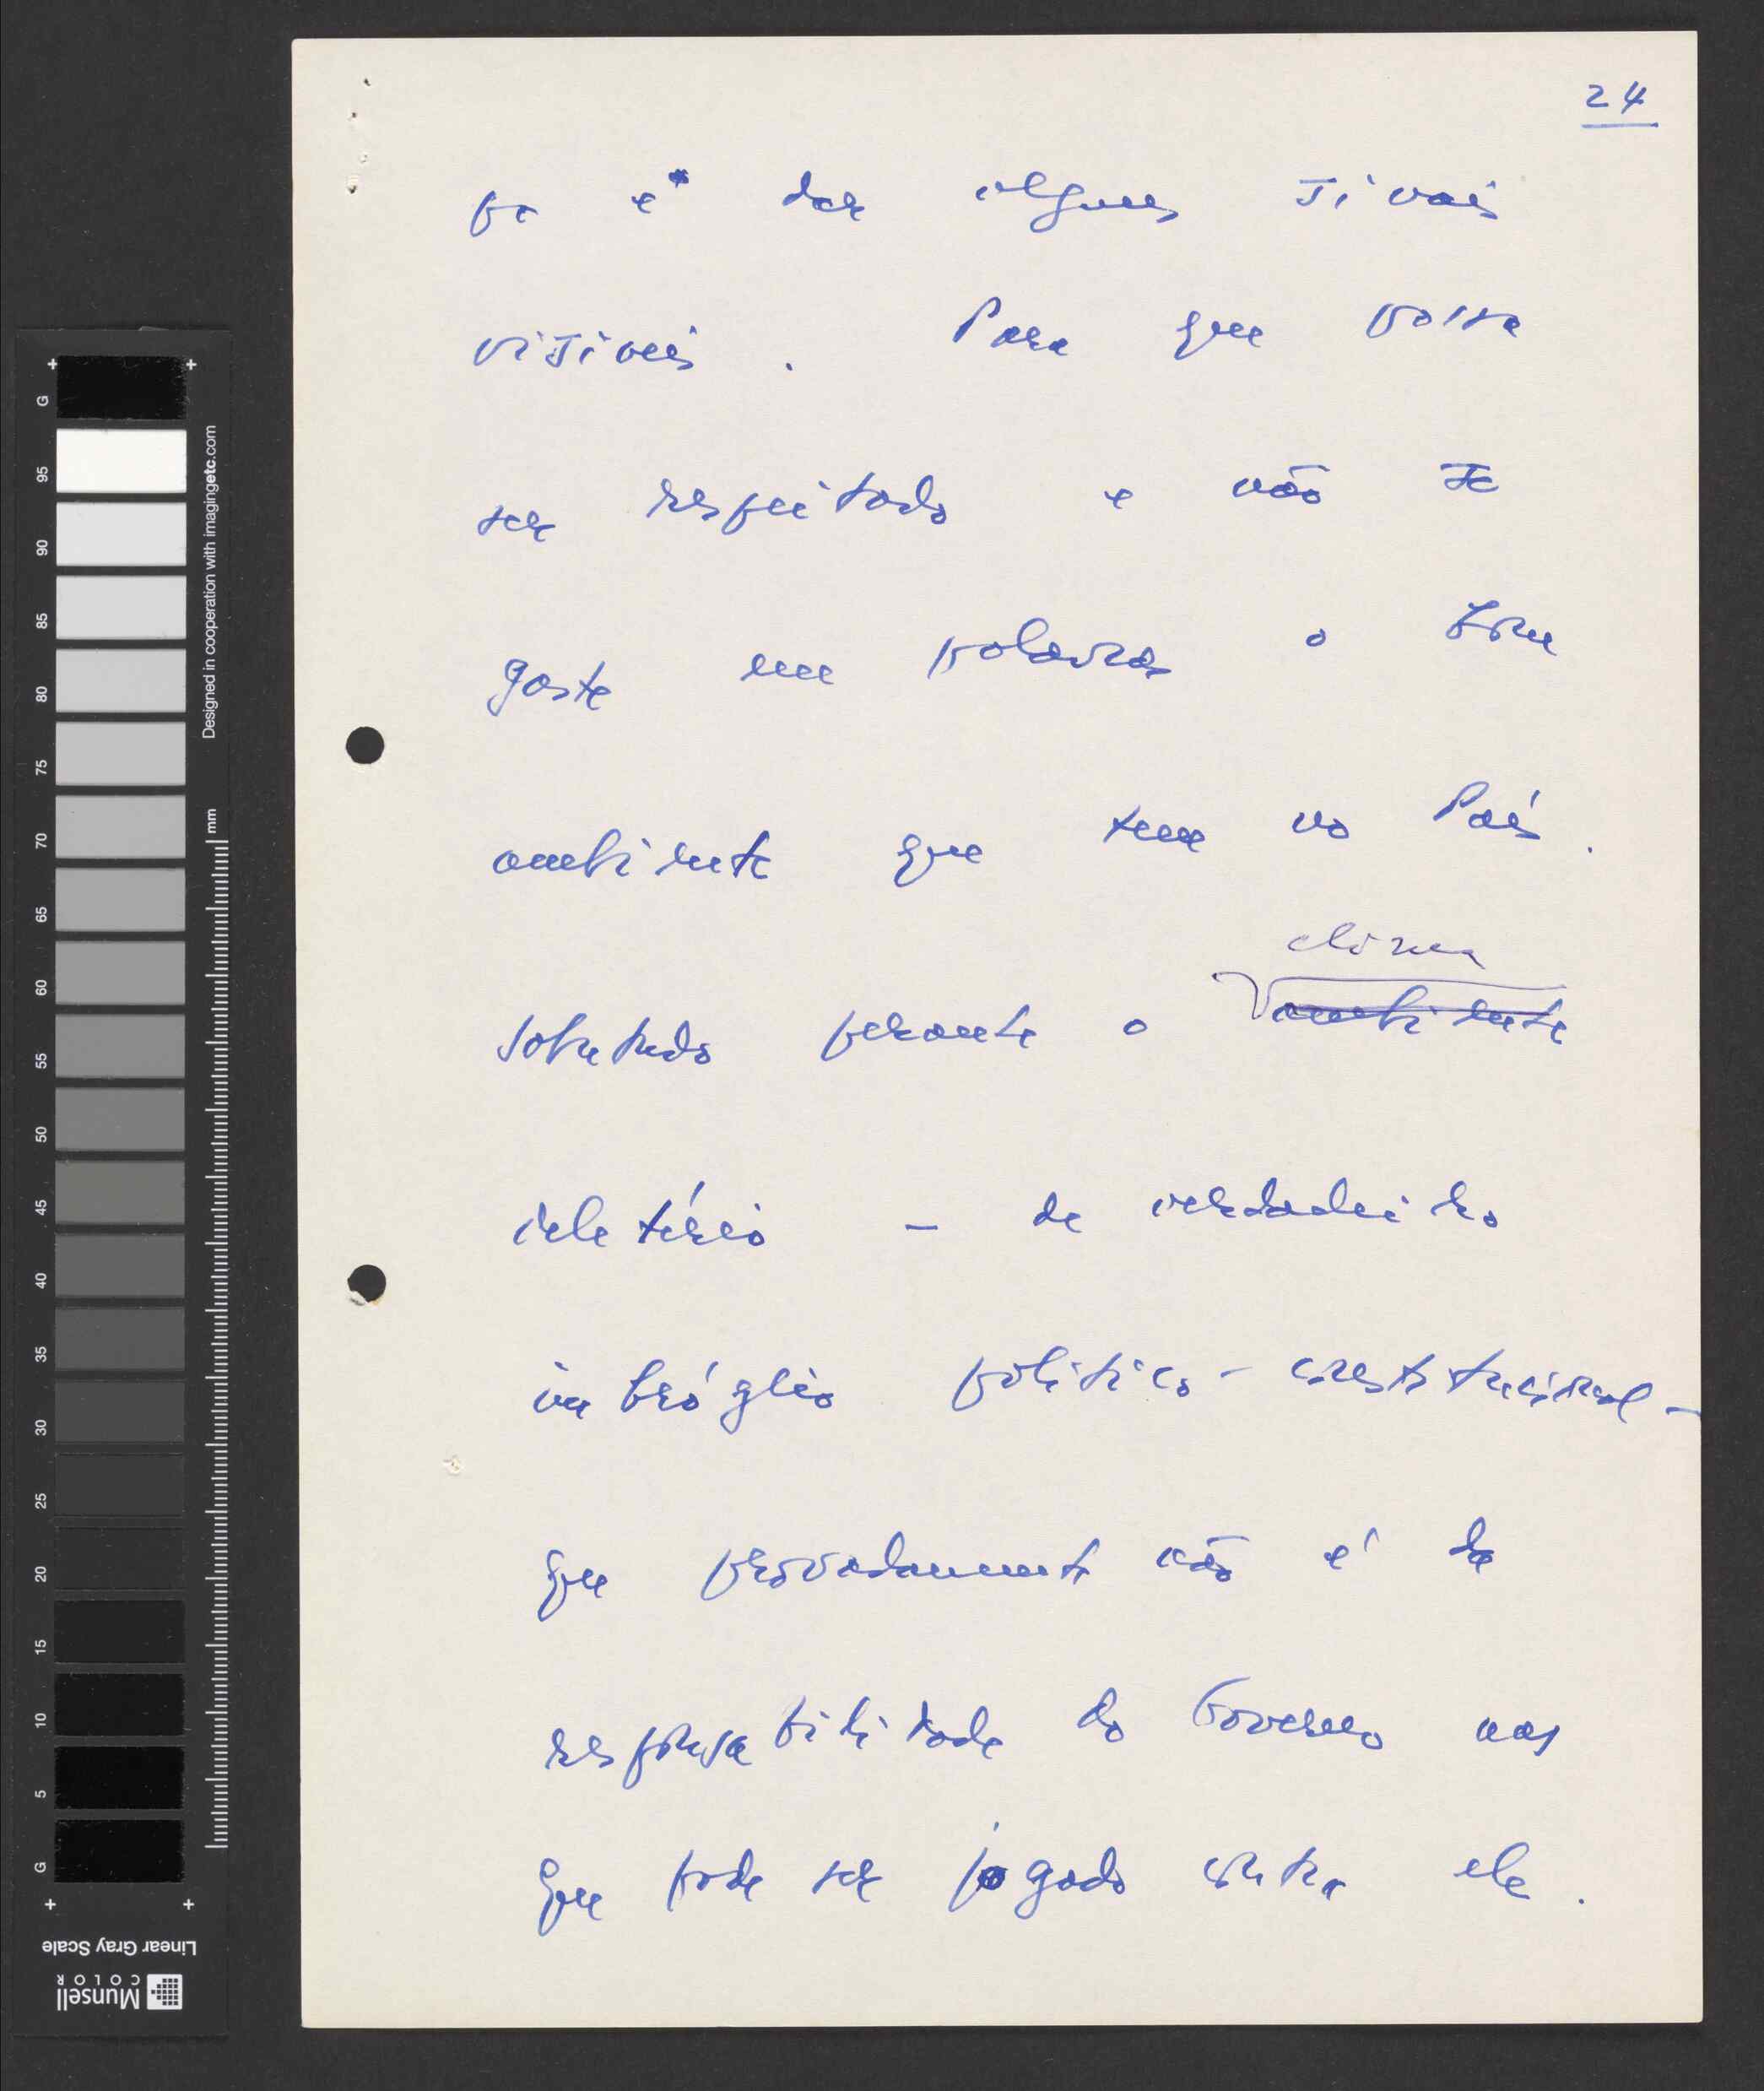 24
po e dar alguns sinais
visíveis. Para que possa
ser respeitado e não se
gaste em palavras o bom
ambiente que tem no País.
clima
sobretudo perante o ambiente
deletério - de verdadeiro
imbróglio político-constitucional -
que provadamente não é da
responsabilidade do Governo mas
que pode ser jogado contra ele.
G
95
90
85
80
75
70
65
60
55
50
45
40
35
30
25
20
15
10
5
G
Designed in cooperation with imagingetc.com
mm
Linear Gray Scale
Munsell
COLOR